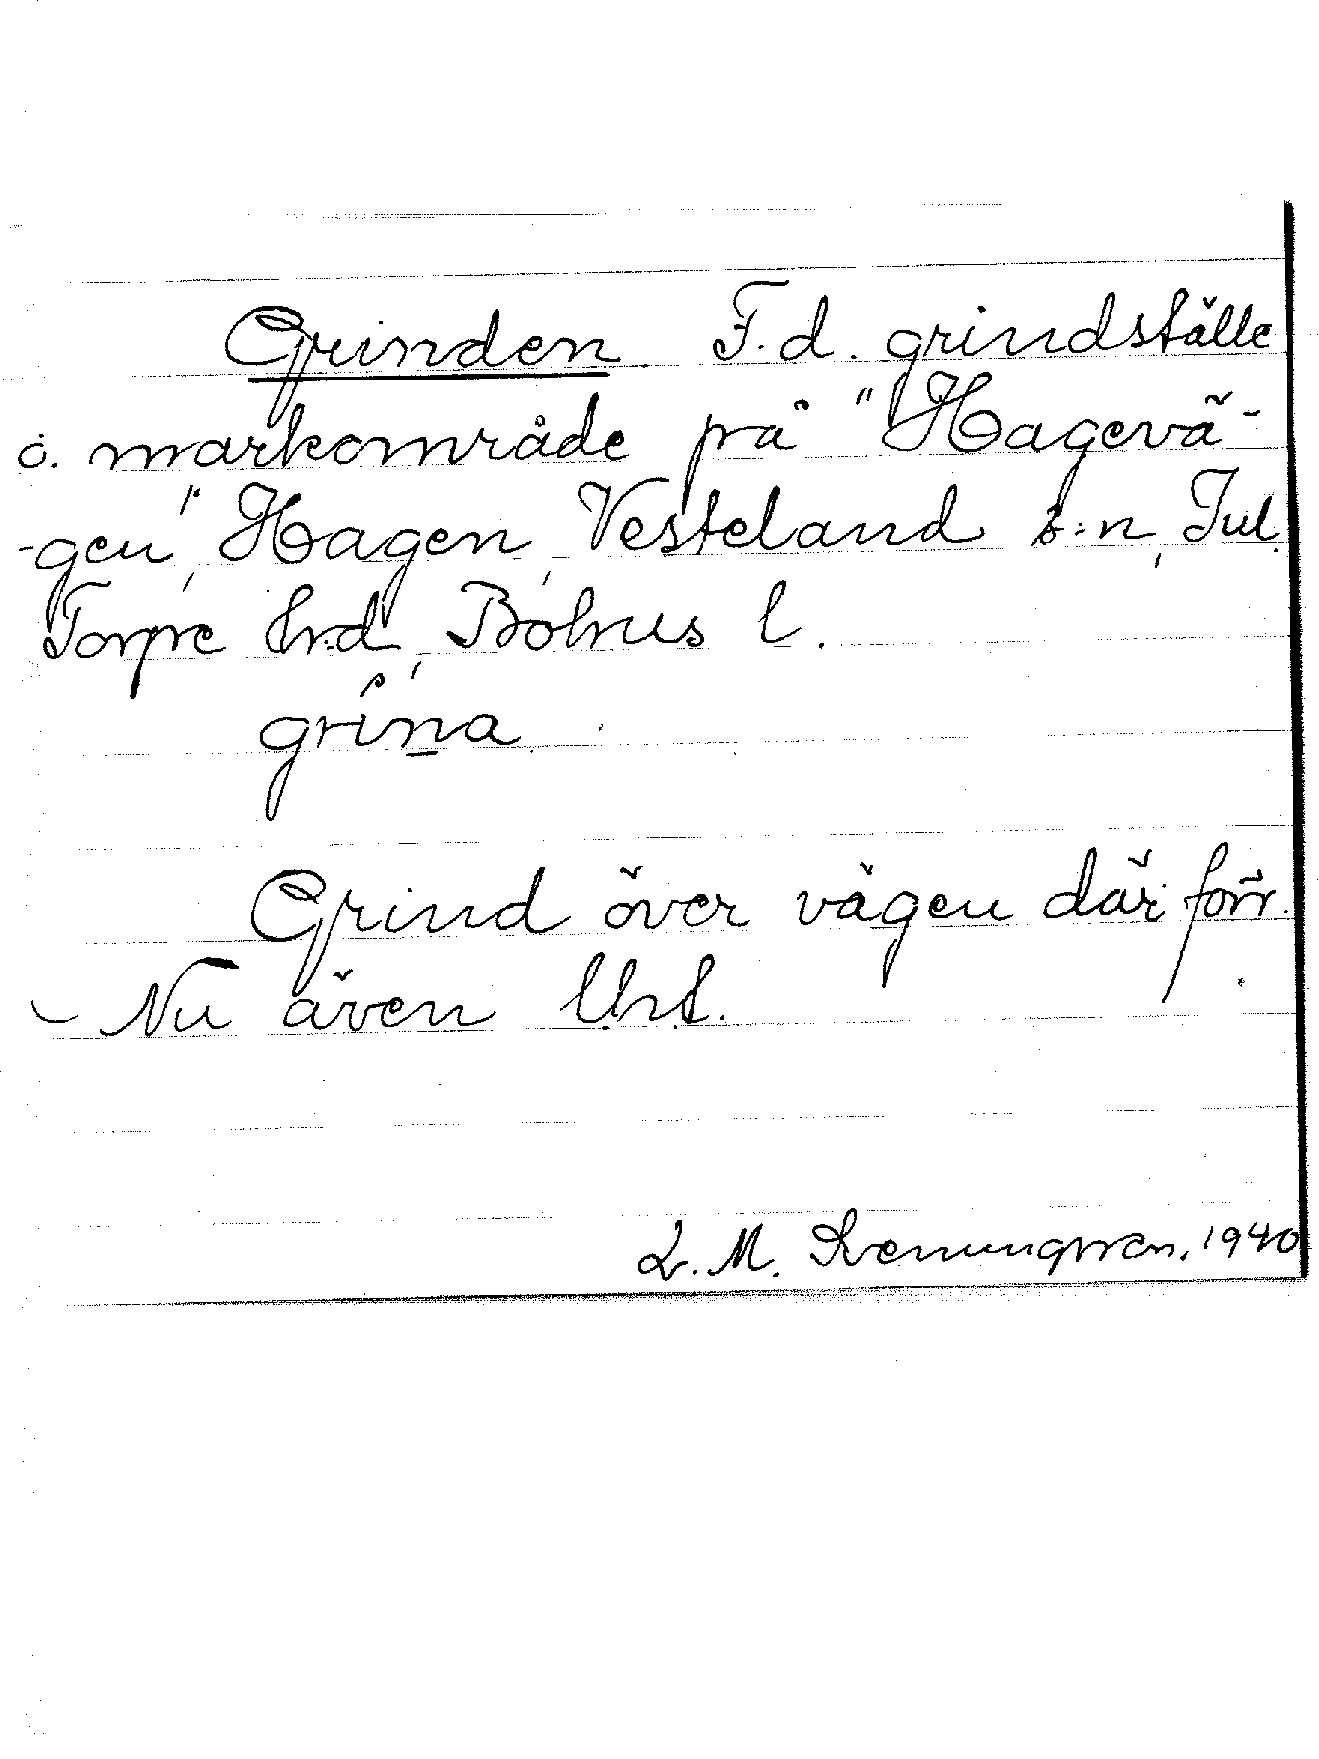 Grinden F.d. grindställe
o. markområde på "Hagevä-
-gen", Hagen, Vesteland s:n, Inl.
Torpe hrd, Bohus l.
grina
Grind över vägen där förr.
- Nu även lht.
L. M. Svenungsson, 1940